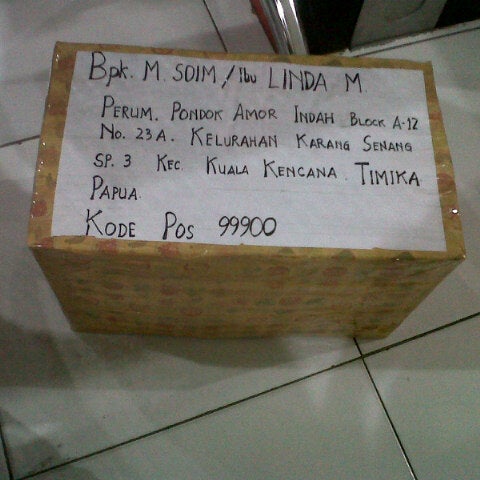 Bpk. M. SOIM / Ibu LINDA M.
PERUM. PONDOK AMOR INDAH BLOCK A-12
No. 23 A. KELURAHAN KARANG SENANG
SP. 3 KEC. KUALA KENCANA. TIMIKA
PAPUA.
KODE POS 99900